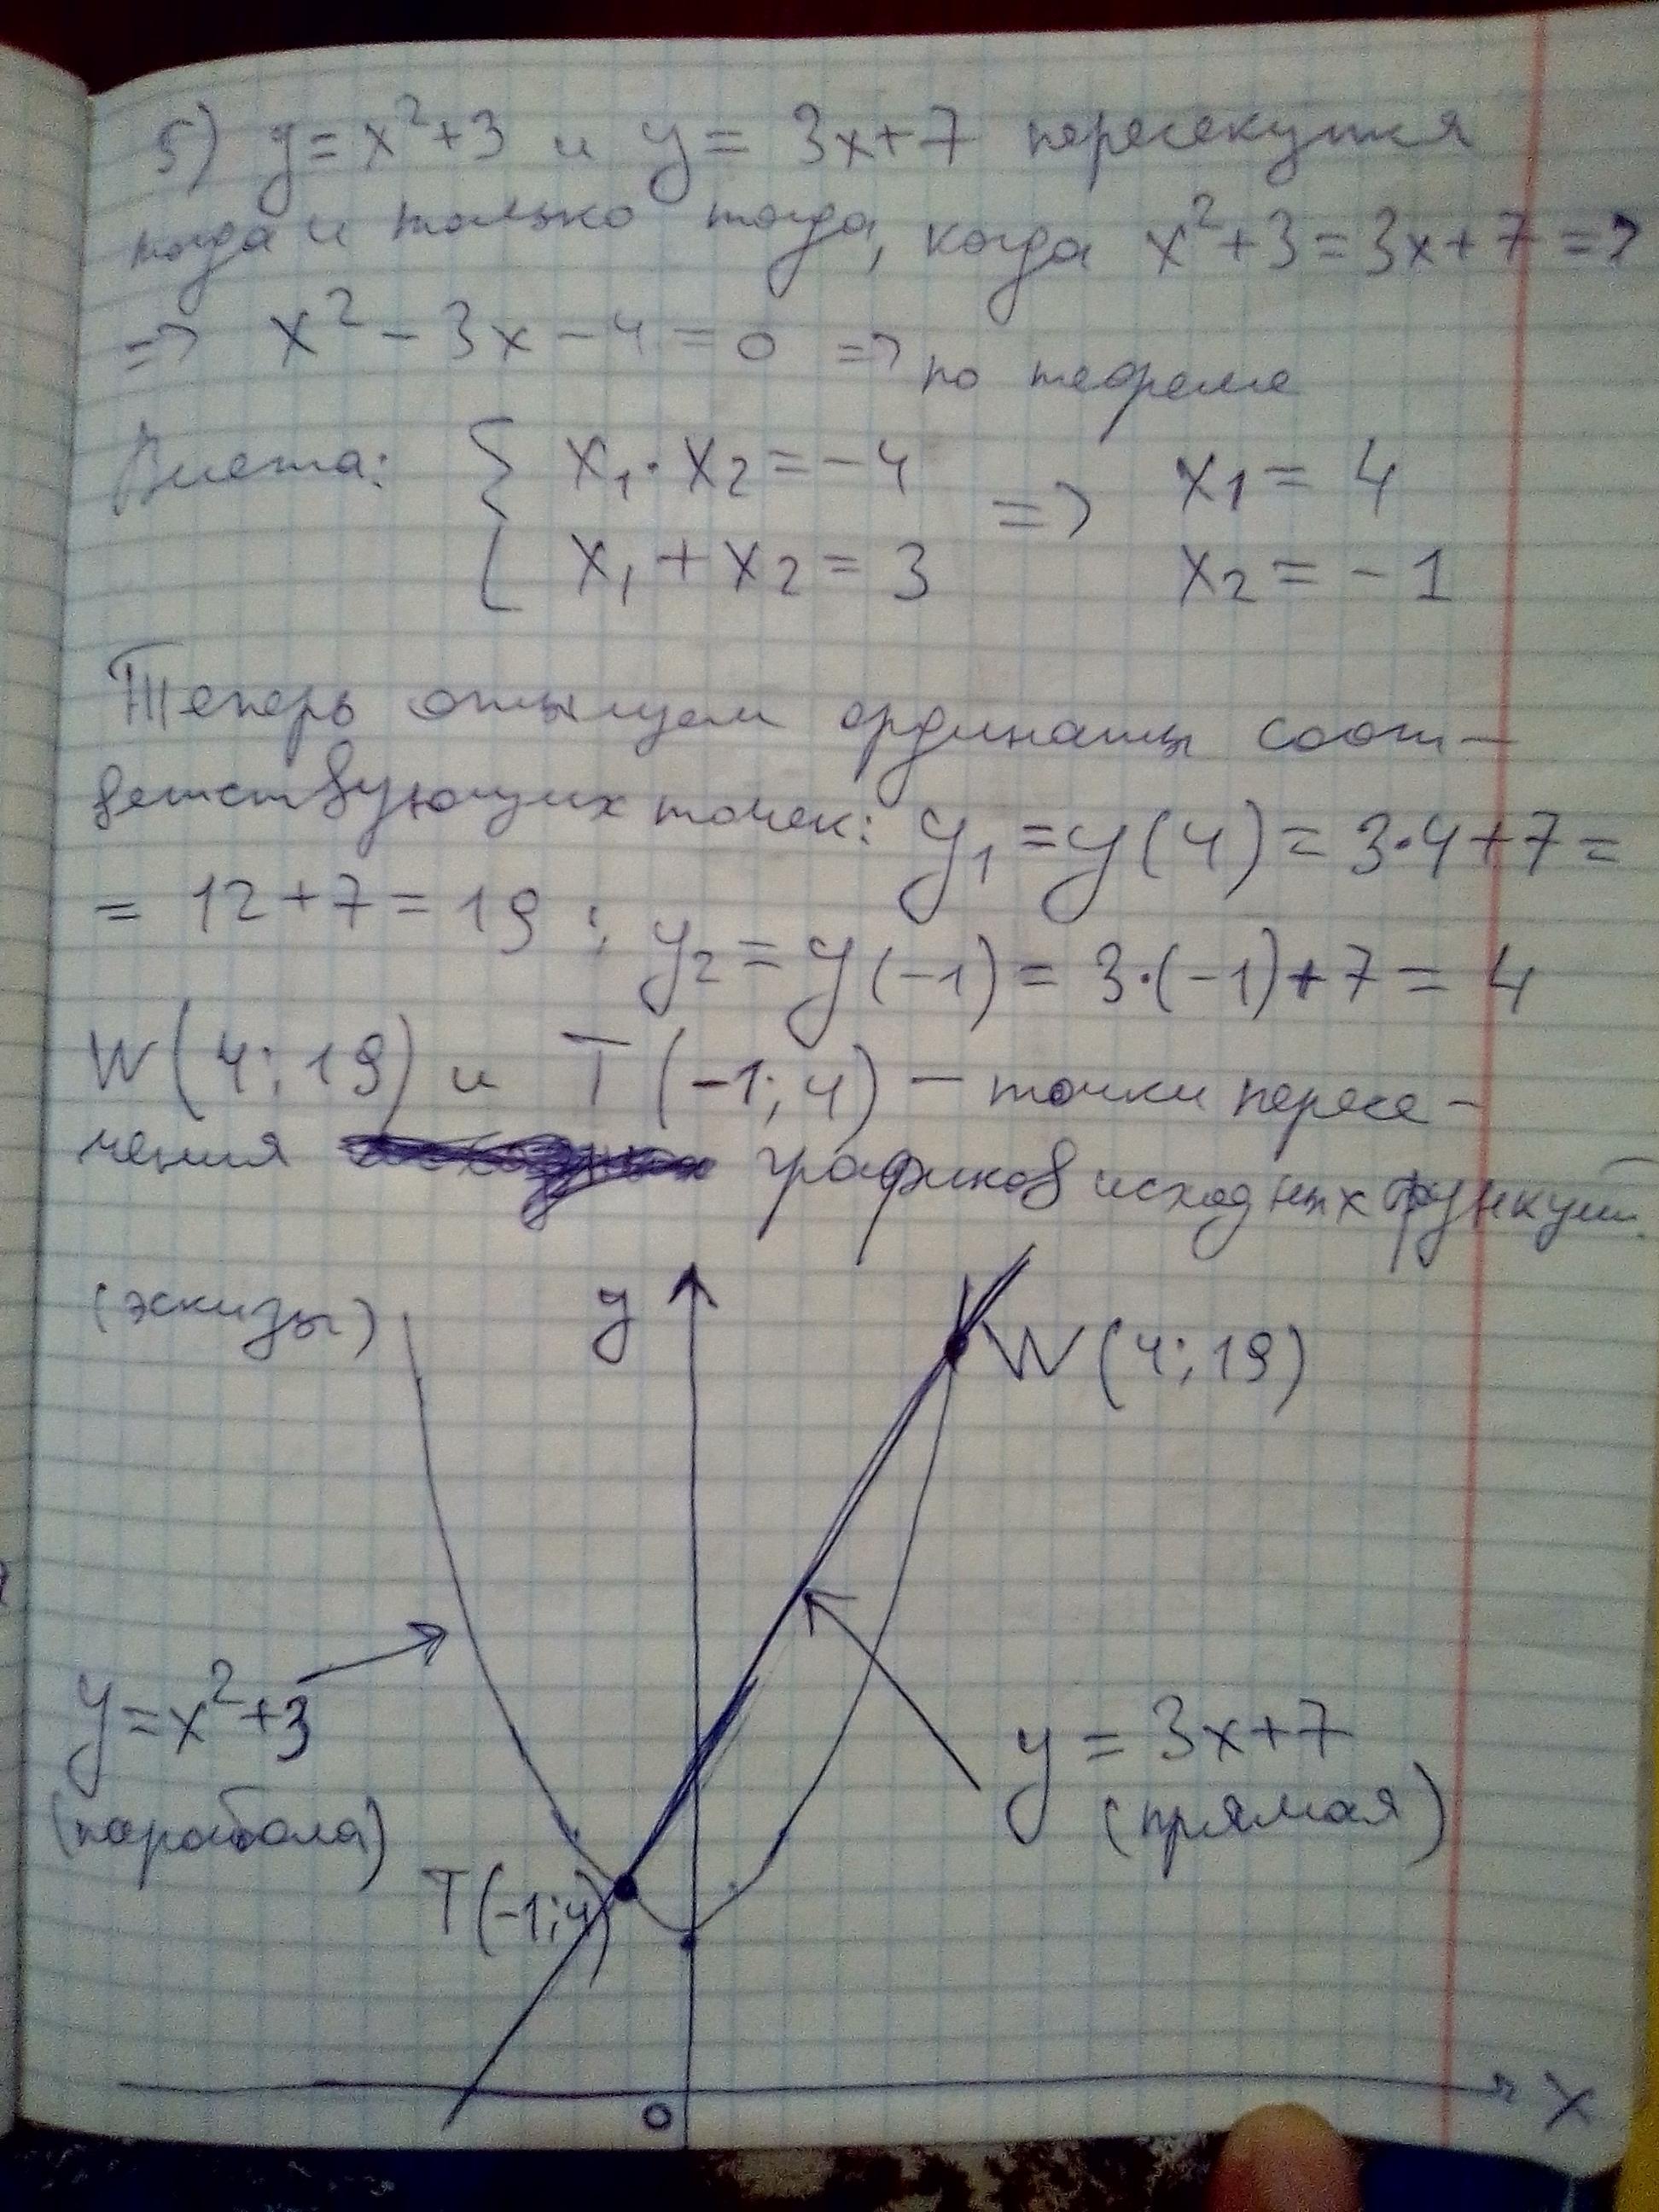 5) y = x² + 3 и y = 3x + 7 пересекутся
тогда и только тогда, когда x² + 3 = 3x + 7 =>
=> x² - 3x - 4 = 0 => по теореме
Виета: { x₁ · x₂ = -4 => x₁ = 4
x₁ + x₂ = 3 x₂ = -1
Теперь отыщем ординаты соот-
ветствующих точек: y₁ = y(4) = 3·4 + 7 =
= 12 + 7 = 19; y₂ = y(-1) = 3·(-1) + 7 = 4
W(4; 19) и T(-1; 4) – точки пересе-
чения графиков исходных функций.
(эскизы)
y
W(4; 19)
y = x² + 3
(парабола)
y = 3x + 7
(прямая)
T(-1; 4)
0
x